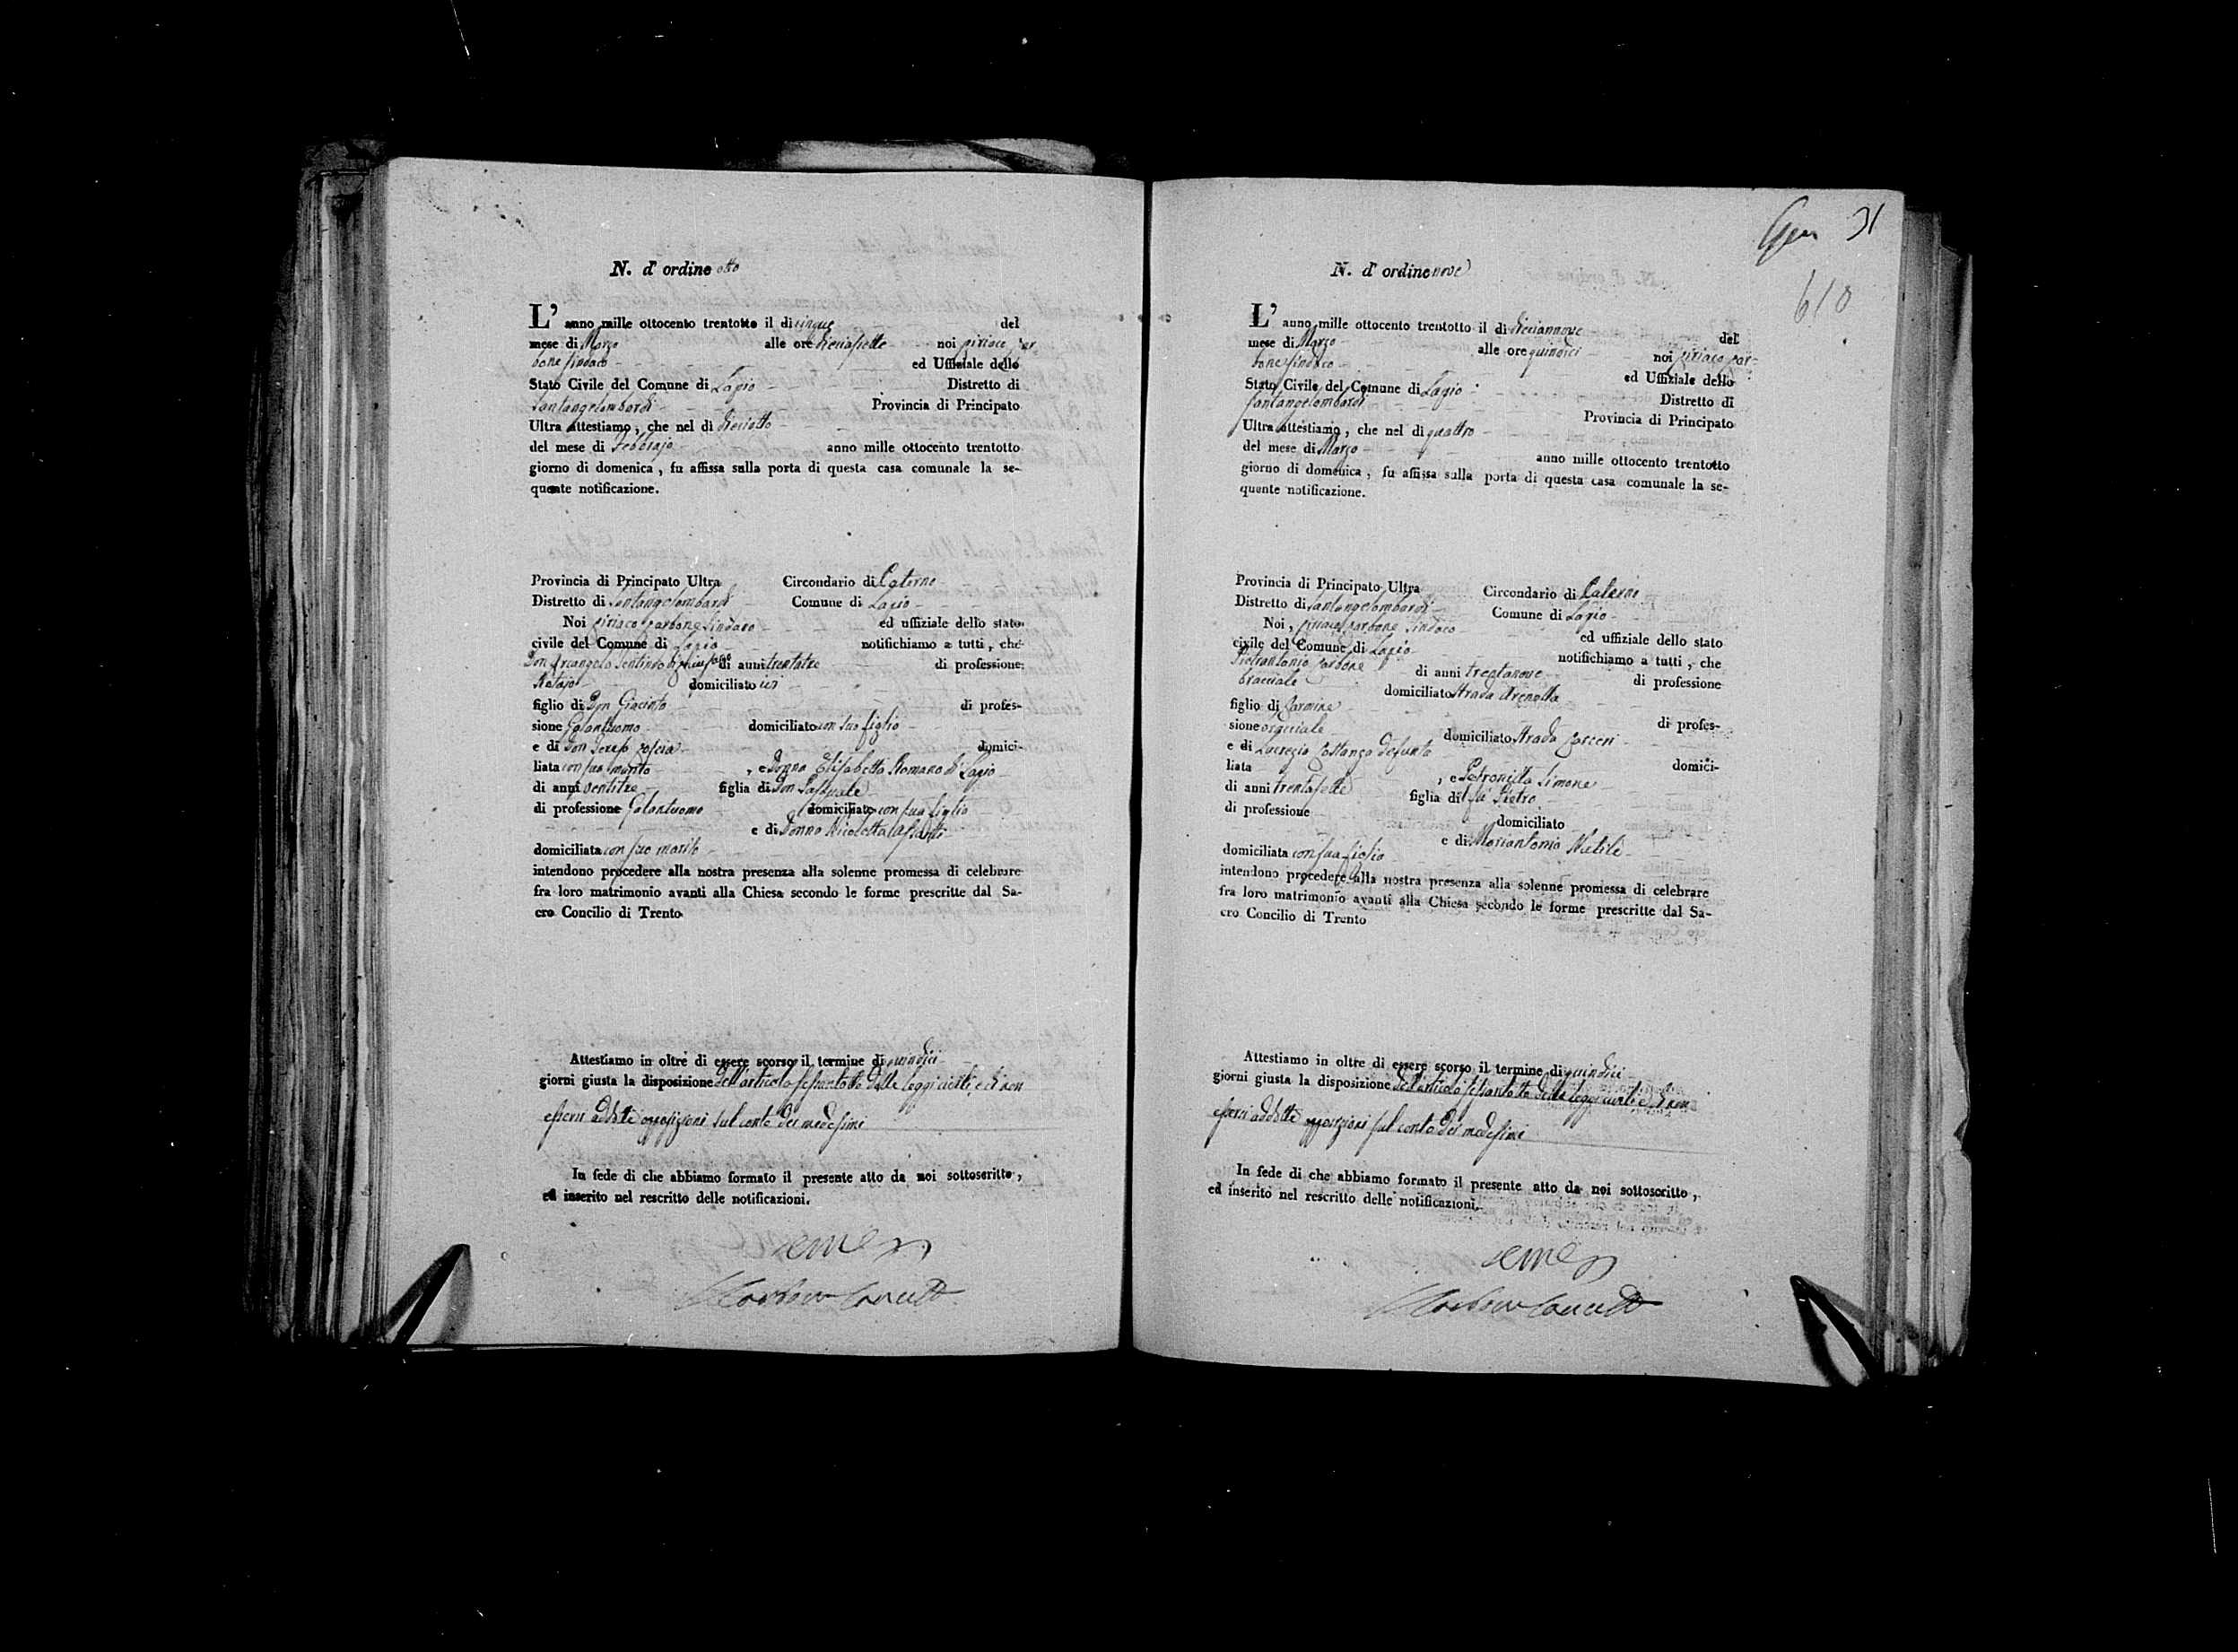 N. d' ordine otto
L' anno mille ottocento trentotto il di cinque del
mese di Marzo alle ore diciasette noi Ciriaco Car-
bone Sindaco ed Uffiziale dello
Stato Civile del Comune di Lapio Distretto di
Santangelombardi Provincia di Principato
Ultra attestiamo, che nel di dieciotto
del mese di Febbrajo anno mille ottocento trentotto
giorno di domenica, fu affissa sulla porta di questa casa comunale la se-
quente notificazione.
Provincia di Principato Ultra Circondario di Paterno
Distretto di Santangelombardi Comune di Lapio
Noi Ciriaco Carbone Sindaco ed uffiziale dello stato
civile del Comune di Lapio notifichiamo a tutti, che
Don Arcangelo di anni trentatre di professione
Notajo domiciliato ivi
figlio di Don Giacinto di profes-
sione Galantuomo domiciliato con suo figlio
e di Don Teresa Coscia domici-
liata con suo marito, e Donna Elisabetta Romano di Lapio
di anni ventitre figlia di Don Pasquale
di professione Galantuomo domiciliato con sua figlia
e di Donna Nicoletta
domiciliata con suo marito
intendono procedere alla nostra presenza alla solenne promessa di celebrare
fra loro matrimonio avanti alla Chiesa secondo le forme prescritte dal Sa-
cro Concilio di Trento
Attestiamo in oltre di essere scorso il termine di quindici
giorni giusta la disposizione dell'articolo sessantotto delle leggi civili e di non
esserci addotte opposizioni sul conto dei medesimi
In fede di che abbiamo formato il presente atto da noi sottoscritto,
ed inserito nel rescritto delle notificazioni.
31
610
N. d' ordine nove
L' anno mille ottocento trentotto il di diciannove del
mese di Marzo alle ore quindici noi Ciriaco Car-
bone Sindaco ed Uffiziale dello
Stato Civile del Comune di Lapio Distretto di
Santangelombardi Provincia di Principato
Ultra attestiamo, che nel di quattro
del mese di Marzo anno mille ottocento trentotto
giorno di domenica, fu affissa sulla porta di questa casa comunale la se-
quente notificazione.
Provincia di Principato Ultra Circondario di Paterno
Distretto di Santangelombardi Comune di Lapio
Noi, Ciriaco Carbone Sindaco ed uffiziale dello stato
civile del Comune di Lapio notifichiamo a tutti, che
Pietrantonio Carbone di anni trentanove di professione
bracciale domiciliato Strada Arenella
figlio di Carmine di profes-
sione domiciliato Strada Carceri
e di Lucrezia Costanza defunta domici-
liata, e Petronilla Simone
di anni trentasette figlia di fu Pietro
di professione domiciliato
e di Mariantonia
domiciliata con sua figlia
intendono procedere alla nostra presenza alla solenne promessa di celebrare
fra loro matrimonio avanti alla Chiesa secondo le forme prescritte dal Sa-
cro Concilio di Trento
Attestiamo in oltre di essere scorso il termine di quindici
giorni giusta la disposizione dell'articolo sessantotto delle leggi civili e di non
esserci addotte opposizioni sul conto dei medesimi
In fede di che abbiamo formato il presente atto da noi sottoscritto,
ed inserito nel rescritto delle notificazioni.